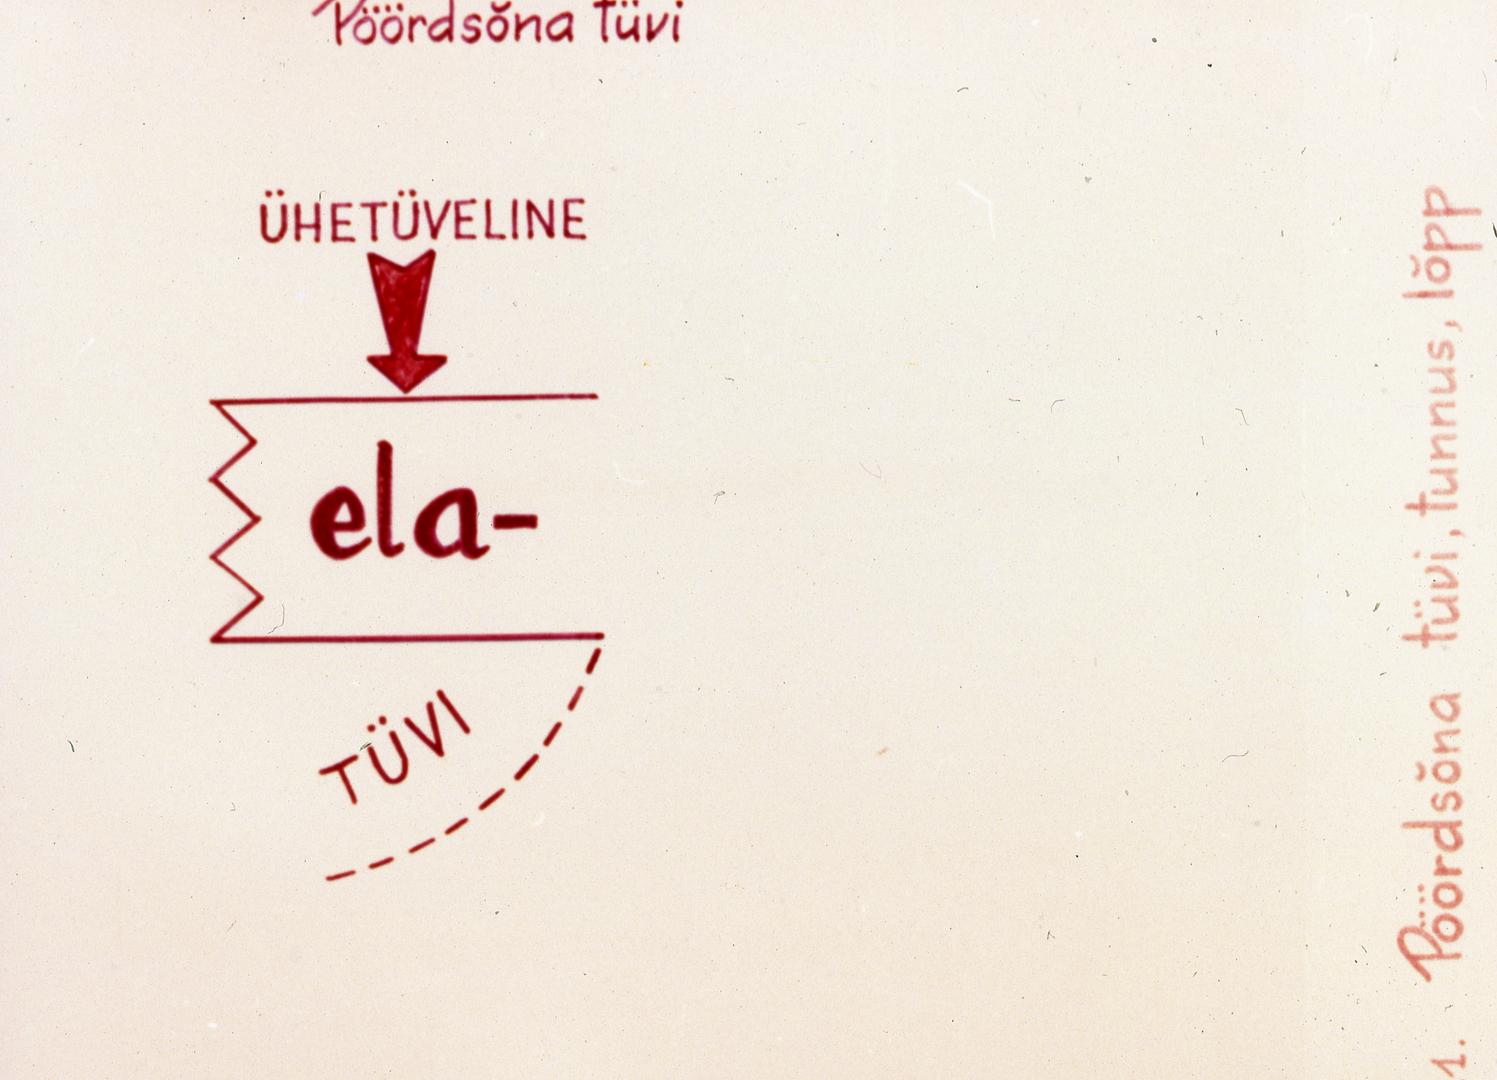 Pöördsõna tüvi
ÜHETÜVELINE
ela-
TÜVI
1. Pöördsõna tüvi, tunnus, lõpp